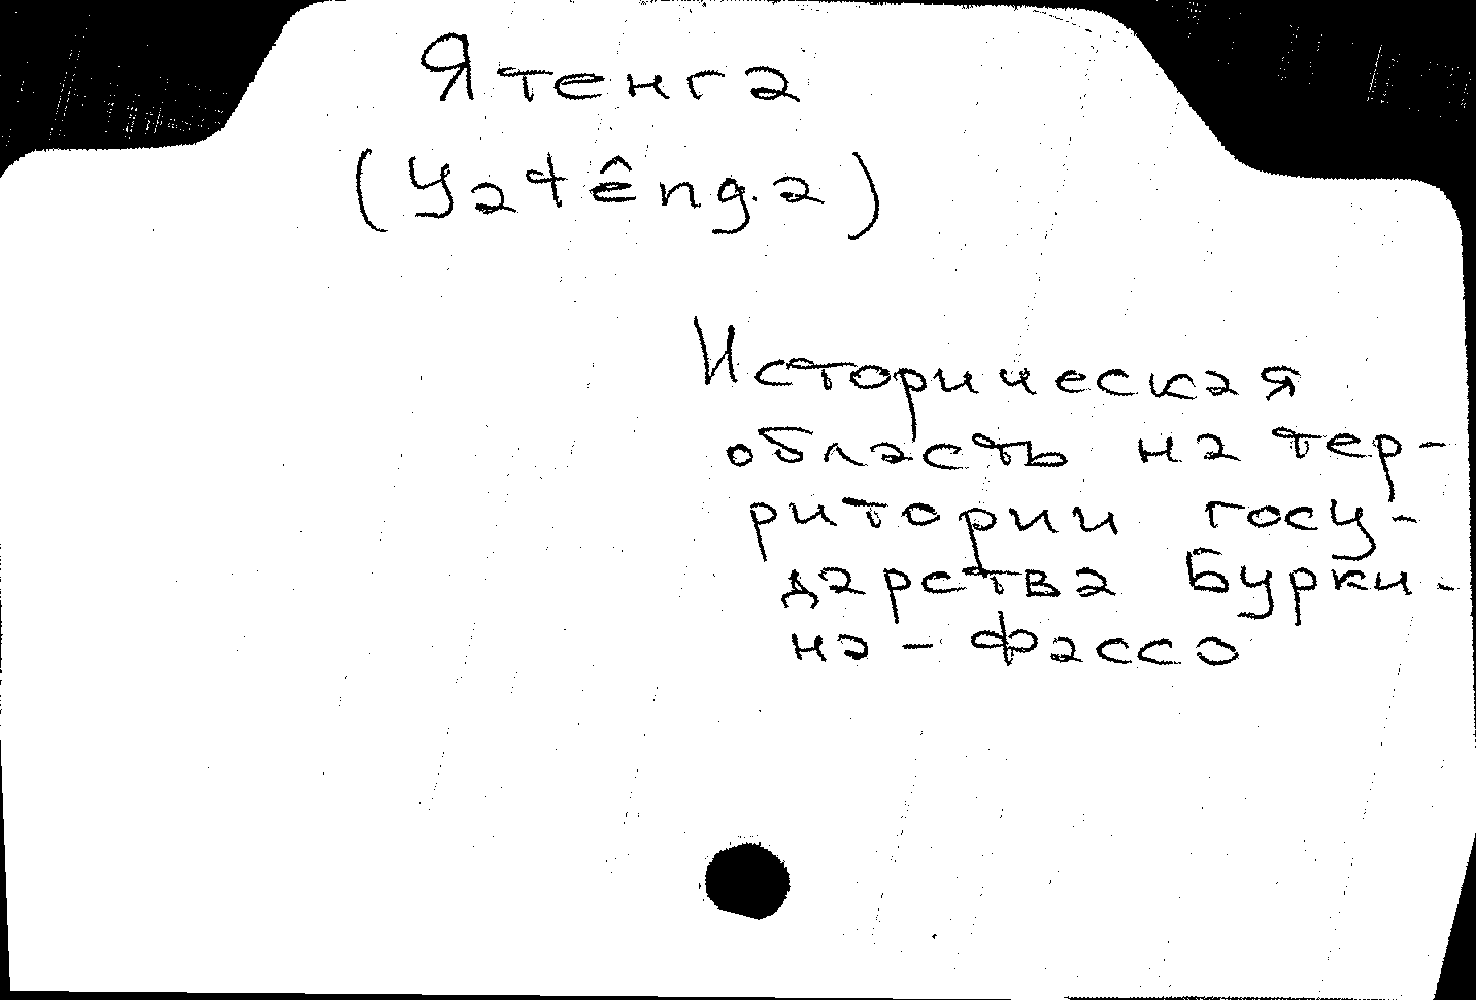 Ятенга
(Yatênga)
Историческая
область на тер-
ритории госу-
дарства Бурки-
на-Фассо